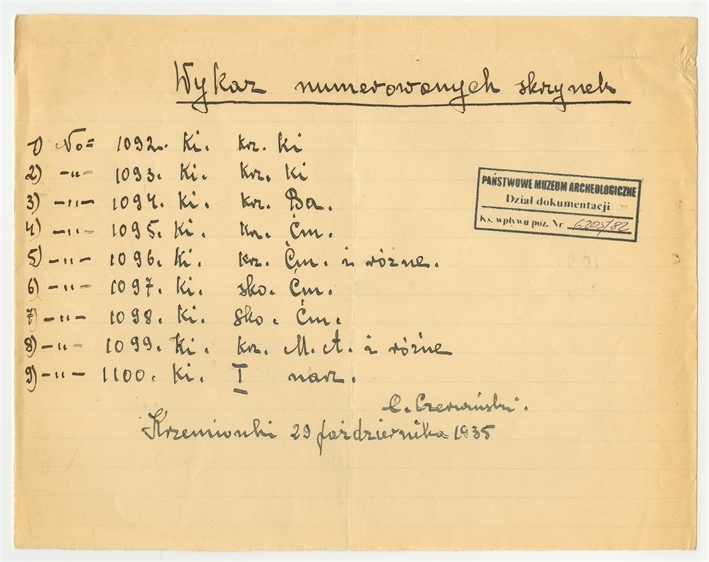 Wykaz numerowanych skrzynek
1) No= 1092. Ki. krz. ki
2) -"- 1093. Ki. krz. ki
3) -"- 1094. Ki. krz. Ba.
4) -"- 1095. Ki. krz. Ćm.
5) -"- 1096. Ki. krz. Ćm. i różne.
6) -"- 1097. Ki. sko. Ćm.
7) -"- 1098. Ki. sko. Ćm.
8) -"- 1099. Ki. krz. M. A. i różne
9) -"- 1100. Ki. I narz.
PAŃSTWOWE MUZEUM ARCHEOLOGICZNE
Dział dokumentacji
Ks. wpływu poz. Nr
Krzemionki 29 października 1935